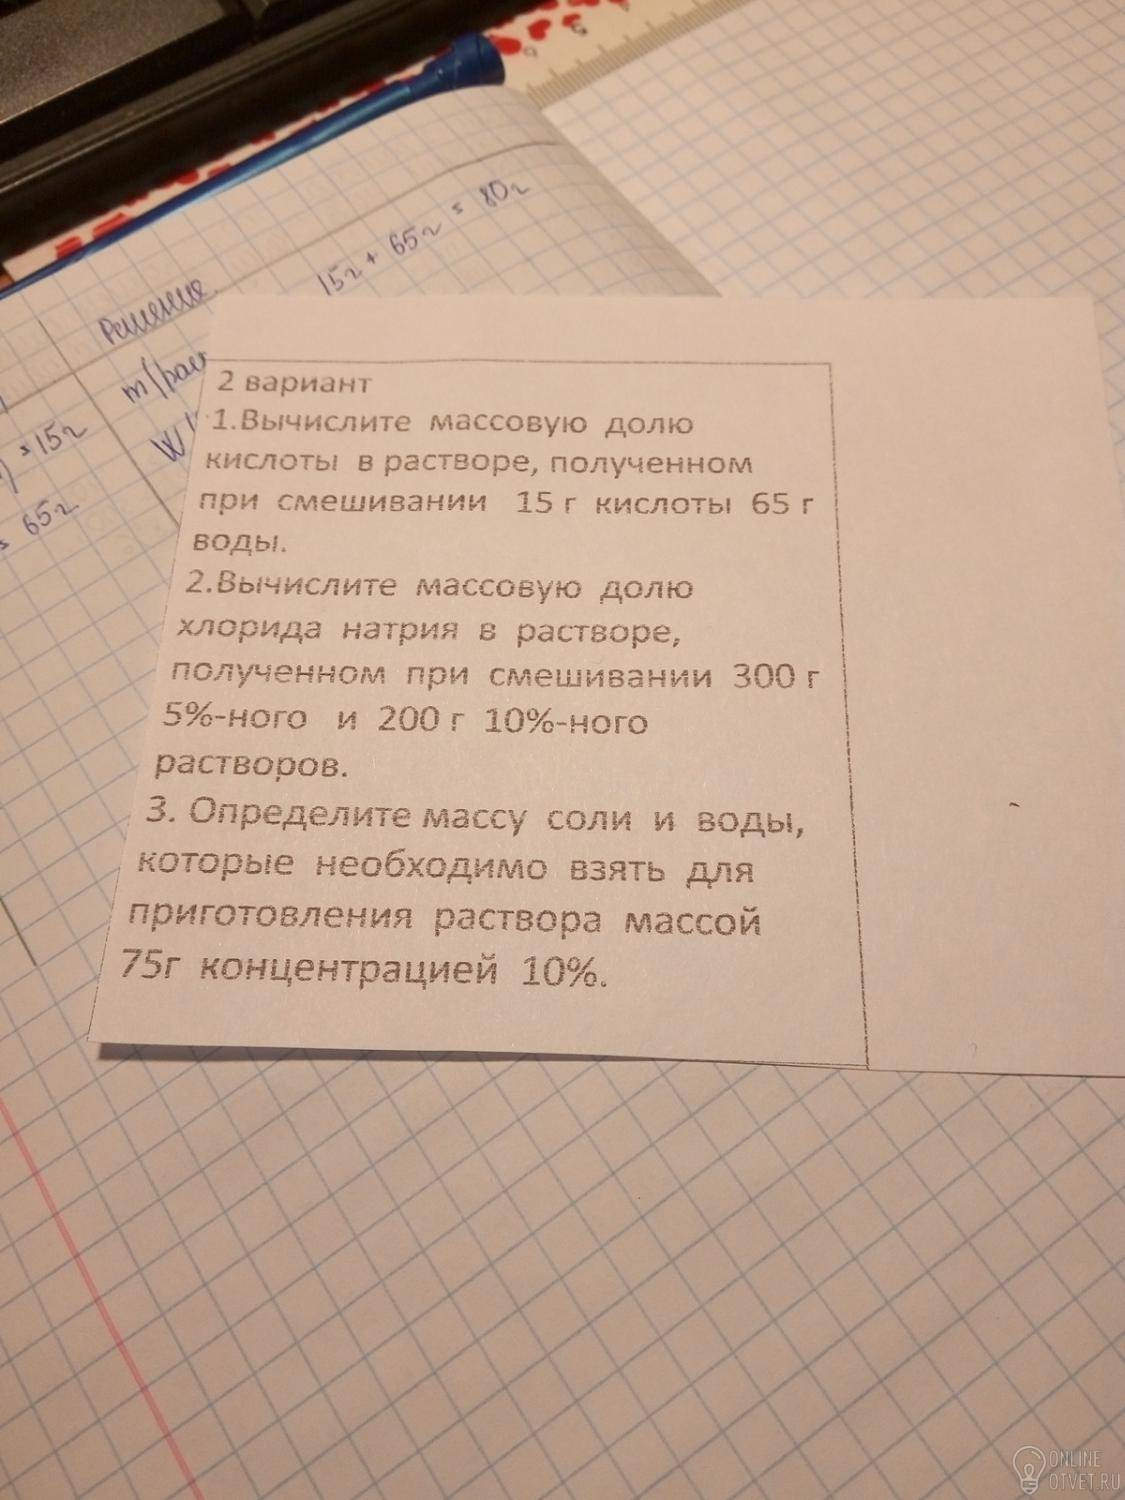 15г + 65г = 80г
Решение
=15г
= 65г
2 вариант
1.Вычислите массовую долю
кислоты в растворе, полученном
при смешивании 15 г кислоты 65 г
воды.
2.Вычислите массовую долю
хлорида натрия в растворе,
полученном при смешивании 300 г
5%-ного и 200 г 10%-ного
растворов.
3. Определите массу соли и воды,
которые необходимо взять для
приготовления раствора массой
75г концентрацией 10%.
ONLINE
OTVET.RU